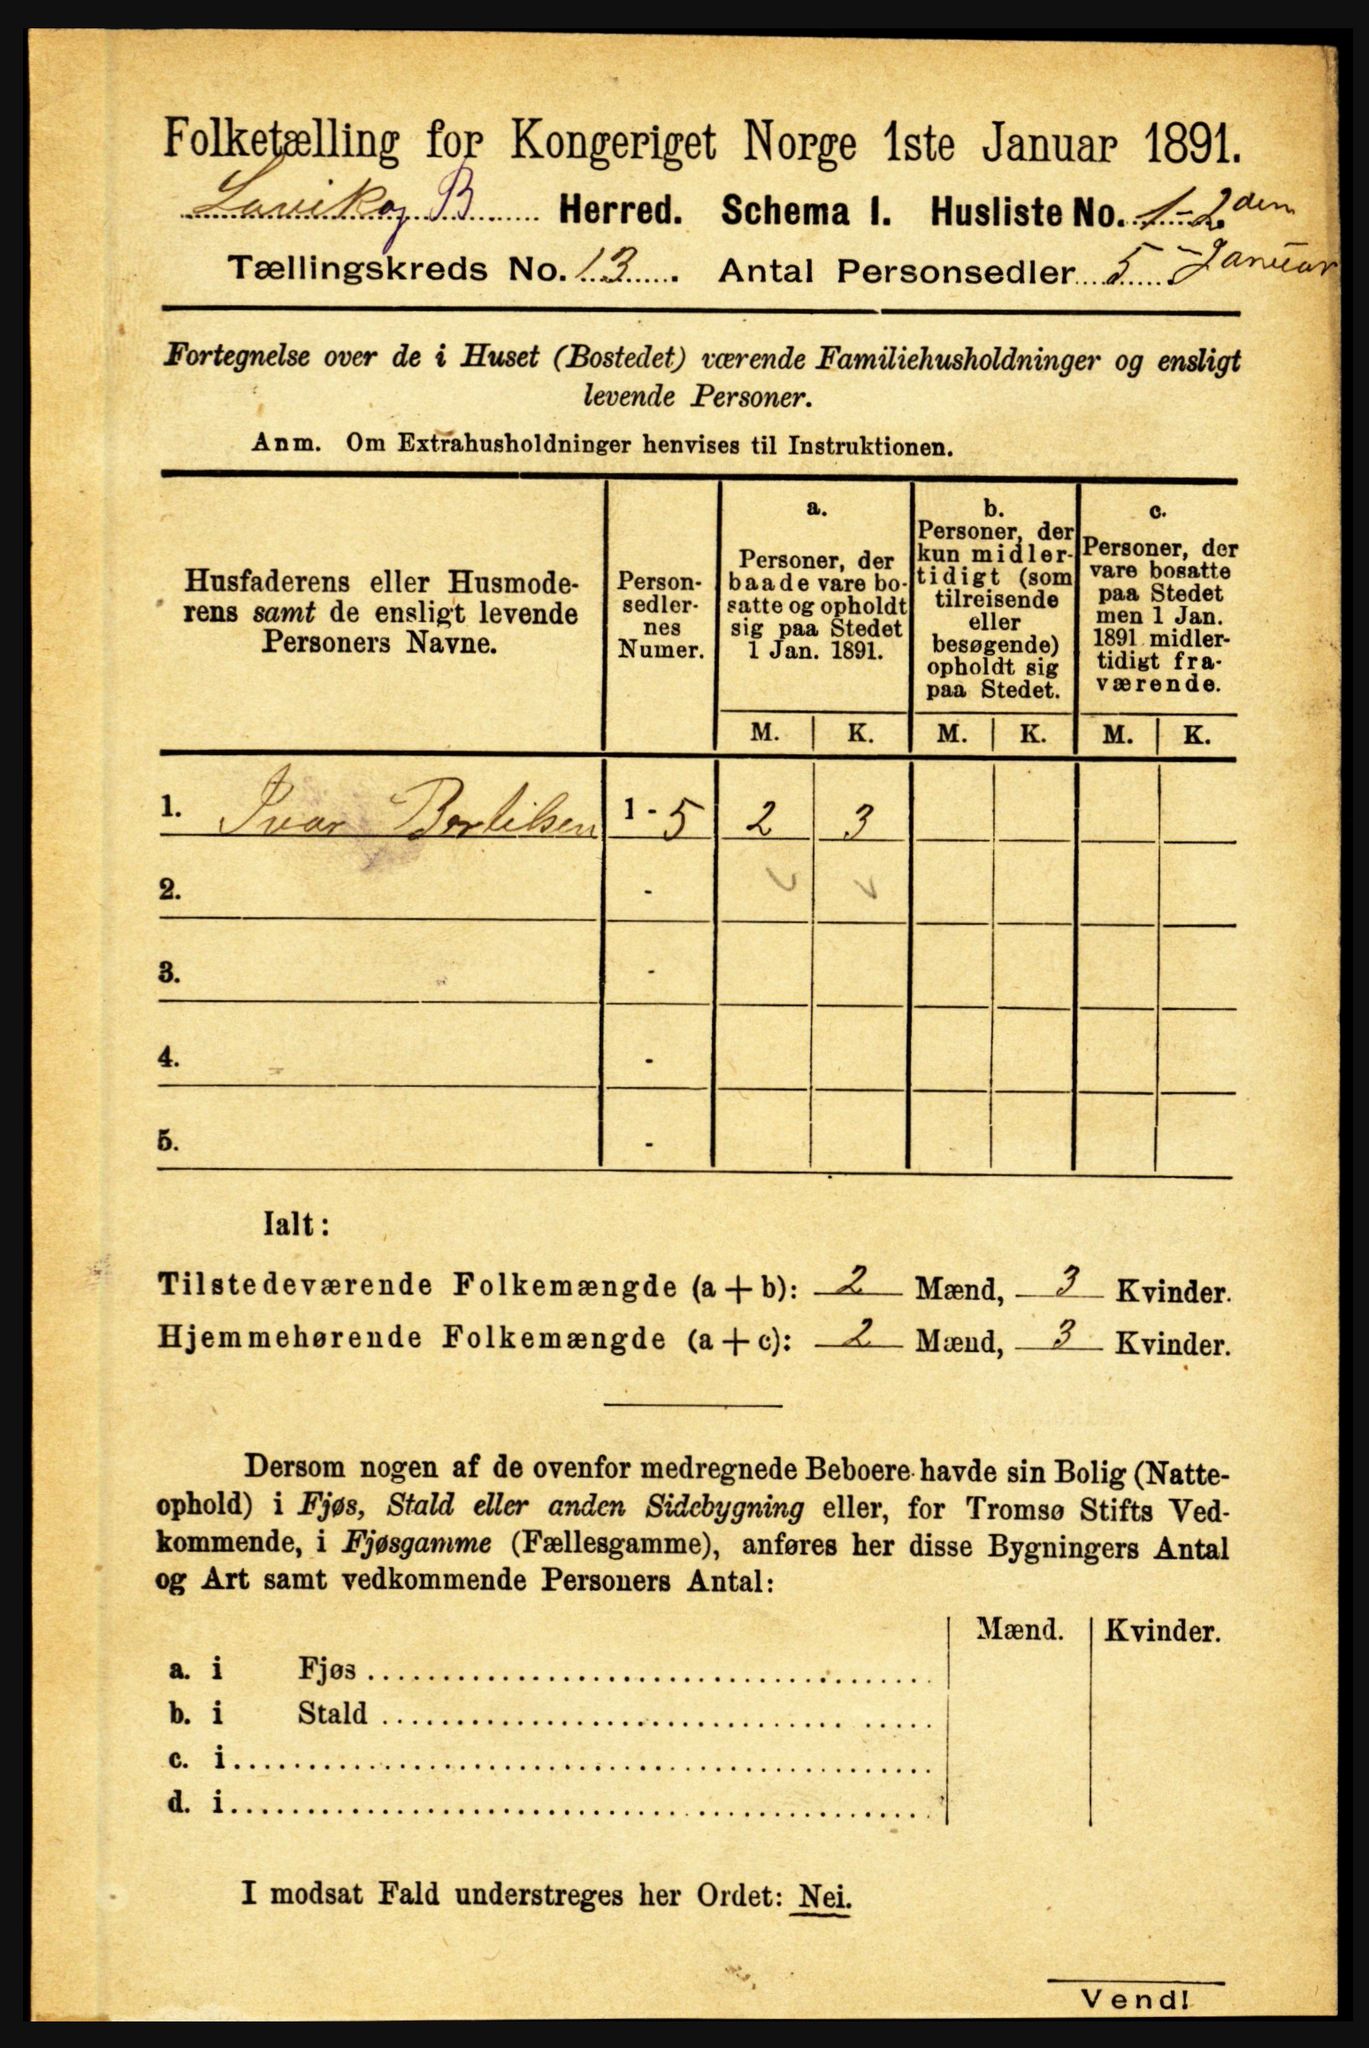 Folketælling for Kongeriget Norge 1ste Januar 1891.
Lavik og B Herred. Schema I. Husliste No. 1 - 2den
Tællingskreds No. 13. Antal Personsedler 5 Januar
Fortegnelse over de i Huset (Bostedet) værende Familiehusholdninger og ensligt
levende Personer.
Anm. Om Extrahusholdninger henvises til Instruktionen.
Husfaderens eller Husmode-
rens samt de ensligt levende
Personers Navne.
Person-
sedler-
nes
Numer.
a.
Personer, der
baade vare bo-
satte og opholdt
sig paa Stedet
1 Jan. 1891.
b.
Personer, der
kun midler-
tidigt (som
tilreisende
eller
besøgende)
opholdt sig
paa Stedet.
c.
Personer, der
vare bosatte
paa Stedet
men 1 Jan.
1891 midler-
tidigt fra-
værende.
M. K. M. K. M. K.
1. Ivar Bertilsen 1 - 5 2 3
2. -
3. -
4. -
5. -
Ialt:
Tilstedeværende Folkemængde (a + b): 2 Mænd, 3 Kvinder.
Hjemmehørende Folkemængde (a + c): 2 Mænd, 3 Kvinder.
Dersom nogen af de ovenfor medregnede Beboere havde sin Bolig (Natte-
ophold) i Fjøs, Stald eller anden Sidebygning eller, for Tromsø Stifts Ved-
kommende, i Fjøsgamme (Fællesgamme), anføres her disse Bygningers Antal
og Art samt vedkommende Personers Antal:
Mænd. Kvinder.
a. i Fjøs
b. i Stald
c. i
d. i
I modsat Fald understreges her Ordet: Nei.
Vend!